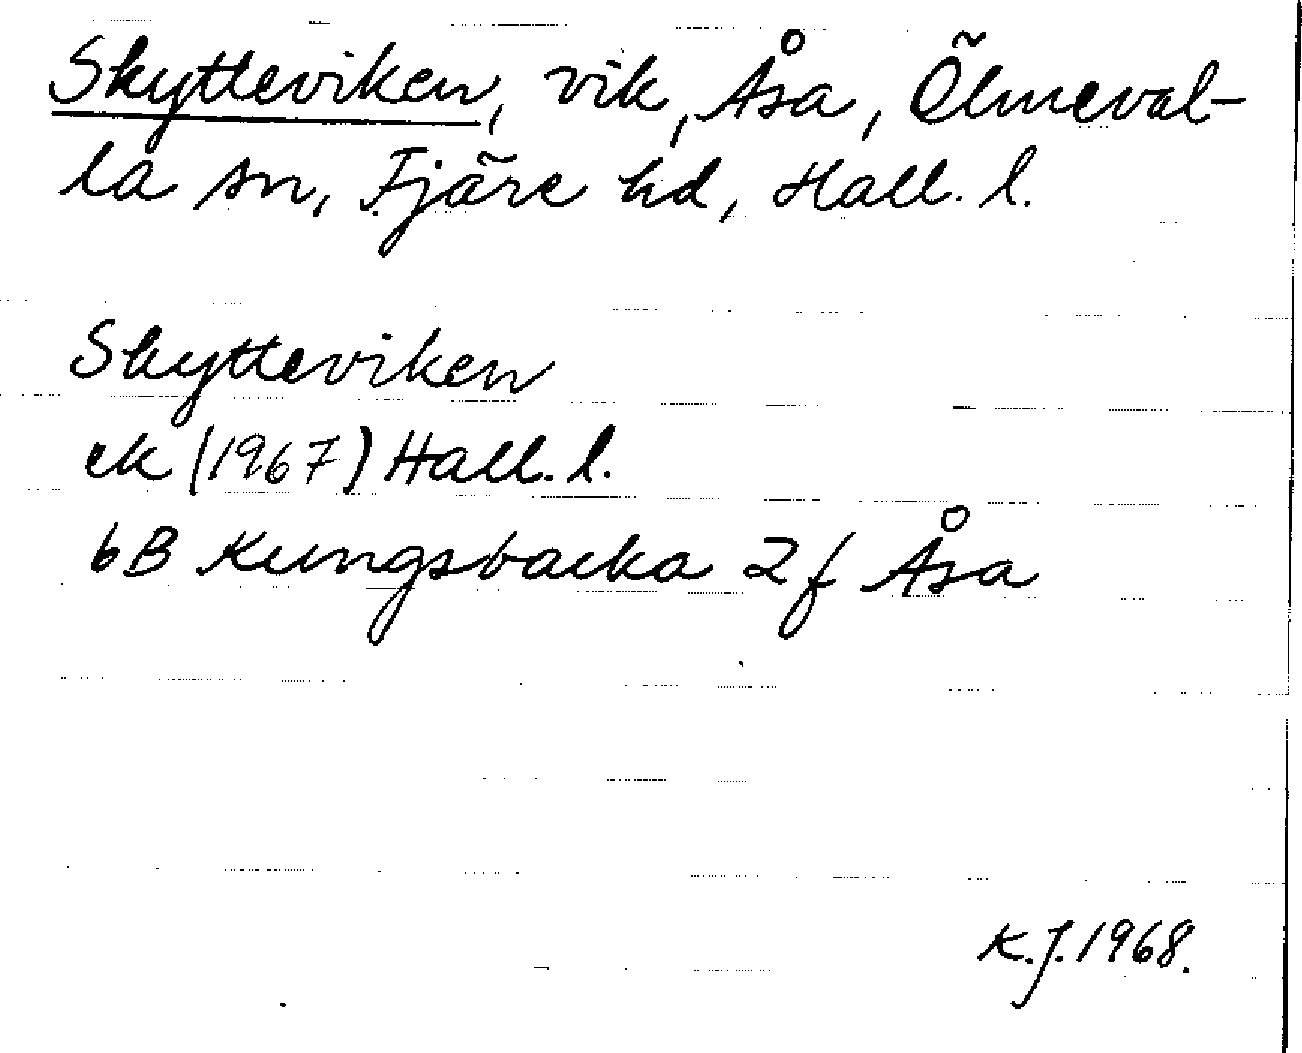 Skytteviken, vik, Åsa, Ölmeval-
la sn, Fjäre hd, Hall. l.
Skytteviken
ek (1967) Hall. l.
6B Kungsbacka 2f Åsa
K.J. 1968.